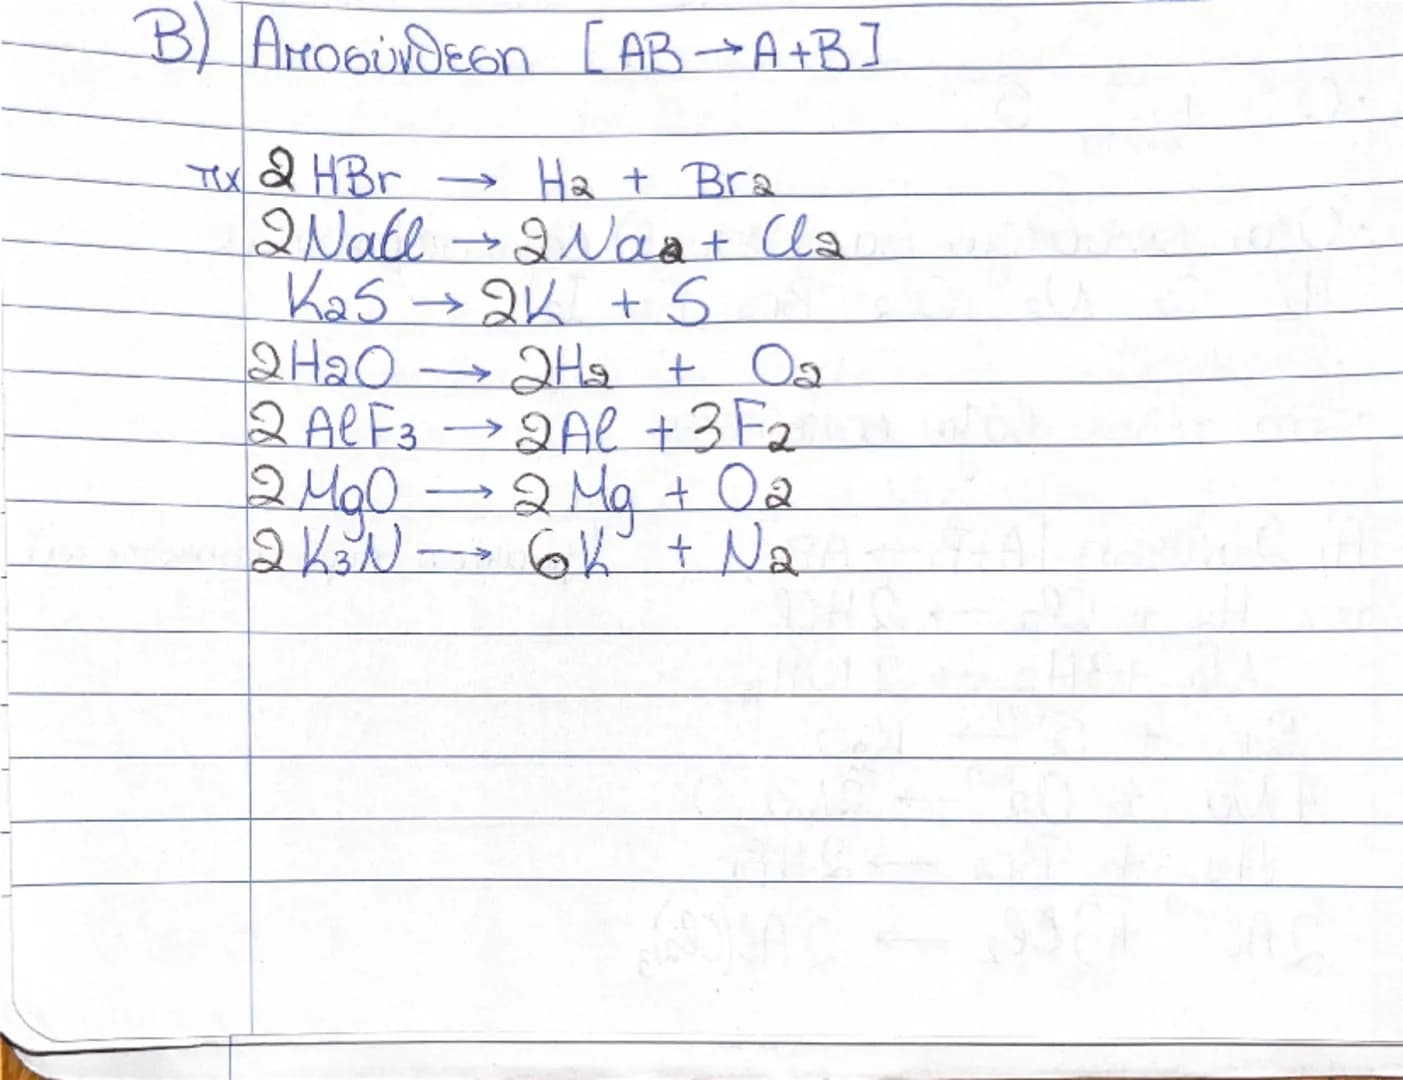 Β) Αποσύνθεση [AB → A + B]
πχ 2HBr → H2 + Br2
2NaCl → 2Na2 + Cl2
K2S → 2K + S
2H2O → 2H2 + O2
2AlF3 → 2Al + 3F2
2MgO → 2Mg + O2
2K3N → 6K + N2